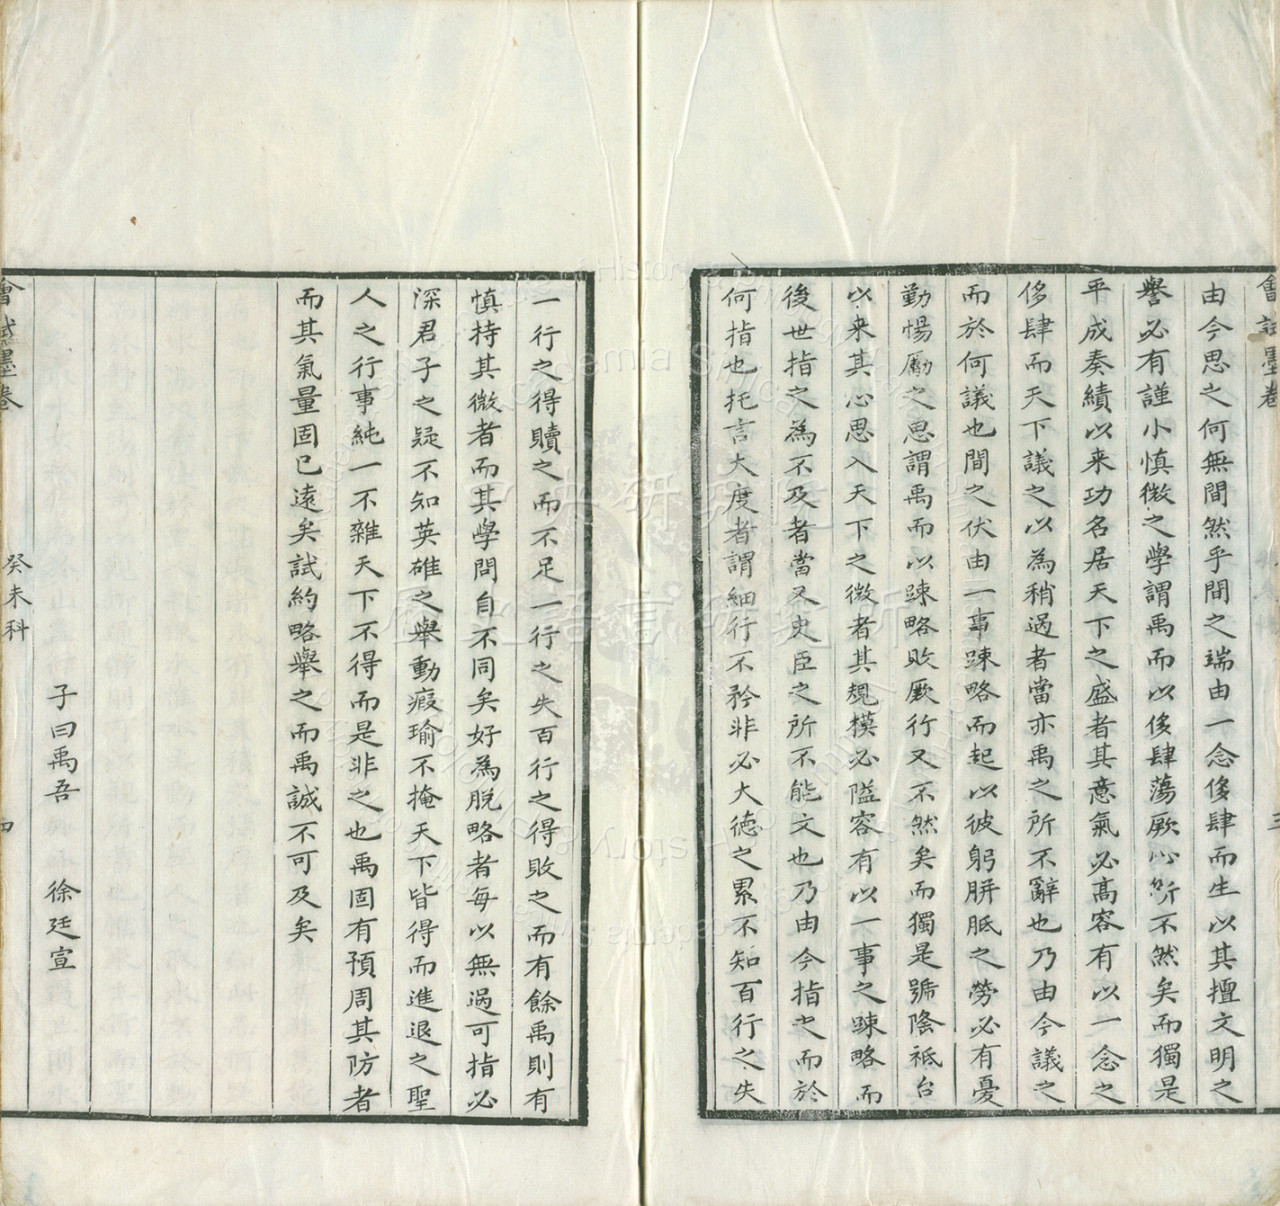 會試墨卷
三
由今思之何無間然乎間之端由一念侈肆而生以其擅文明之
譽必有謹小慎微之學謂禹而以侈肆蕩厥心所不然矣而獨是
平成奏績以来功名居天下之盛者其意氣必髙容有以一念之
侈肆而天下議之以為稍過者當亦禹之所不辭也乃由今議之
而於何議也間之伏由一事踈略而起以彼躬胼胝之勞必有憂
勤惕厲之思謂禹而以踈略敗厥行又不然矣而獨是號隂祗台
以来其心思入天下之微者其規模必隘容有以一事之踈略而
後世指之為不及者當又史臣之所不能文也乃由今指之而於
何指也托言大度者謂細行不矜非必大徳之累不知百行之失
一行之得贖之而不足一行之失百行之得敗之而有餘禹則有
慎持其微者而其學問自不同矣好為脱略者每以無過可指必
深君子之疑不知英雄之舉動瑕瑜不掩天下皆得而進退之聖
人之行事純一不雜天下不得而是非之也禹固有預周其防者
而其氣量固已遠矣試約略舉之而禹誠不可及矣
子曰禹吾 徐廷宣
會試墨卷
癸未科
四